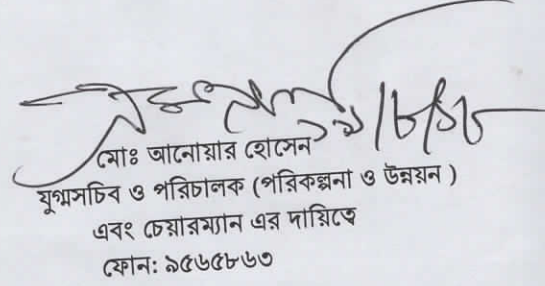 মোঃ আনোয়ার হোসেন
যুগ্মসচিব ও পরিচালক (পরিকল্পনা ও উন্নয়ন )
এবং চেয়ারম্যান এর দায়িত্বে
ফোন: ৯৫৬৫৮৬৩